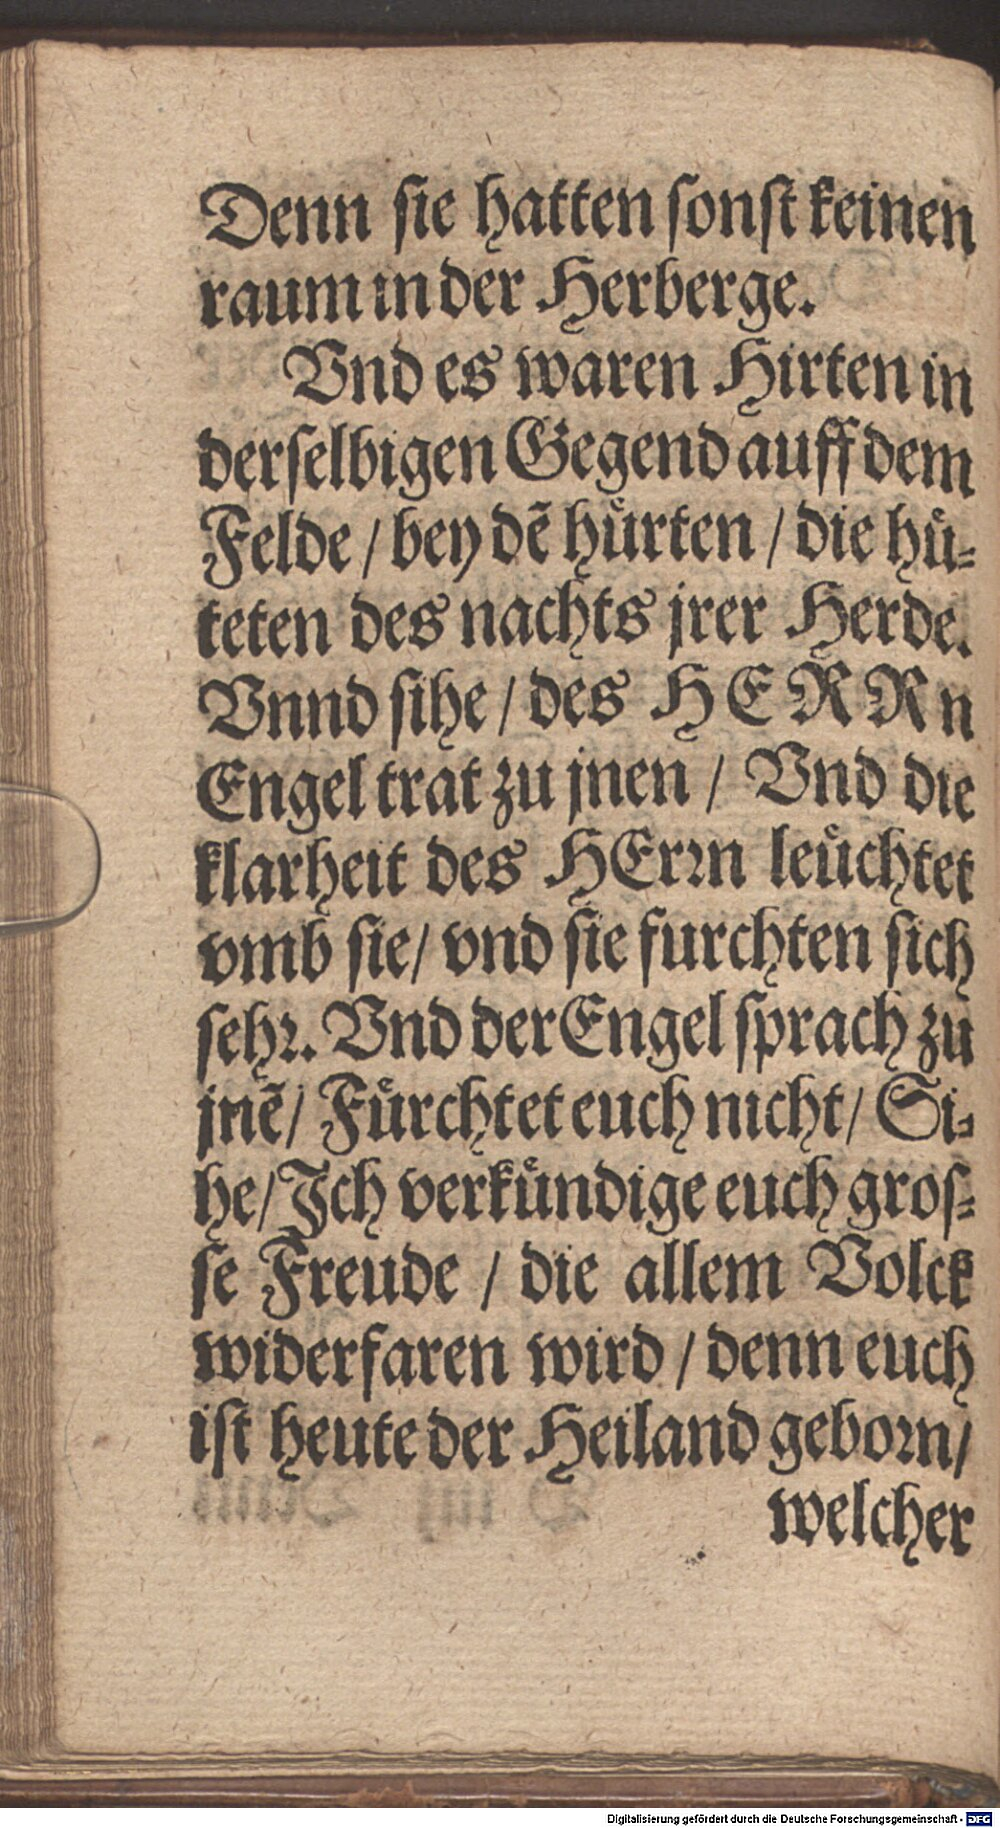 Denn ſie hatten ſonſt keinen
raum in der Herberge.
Vnd es waren Hirten in
derſelbigen Gegend auff dem
Felde / bey dẽ huͤrten / die huͤ-
teten des nachts jrer Herde.
Vnnd ſihe / des HERRn
Engel trat zu jnen / Vnd die
klarheit des HErꝛn leuͤchtet
vmb ſie / vnd ſie furchten ſich
ſehꝛ. Vnd der Engel ſprach zu
jnẽ / Fuͤrchtet euch nicht / Si-
he / Jch verkuͤndige euch groſ-
ſe Freude / die allem Volck
widerfaren wird / denn euch
iſt heute der Heiland geboꝛn /
welcher
Digitalisierung gefördert durch die Deutsche Forschungsgemeinschaft - DFG